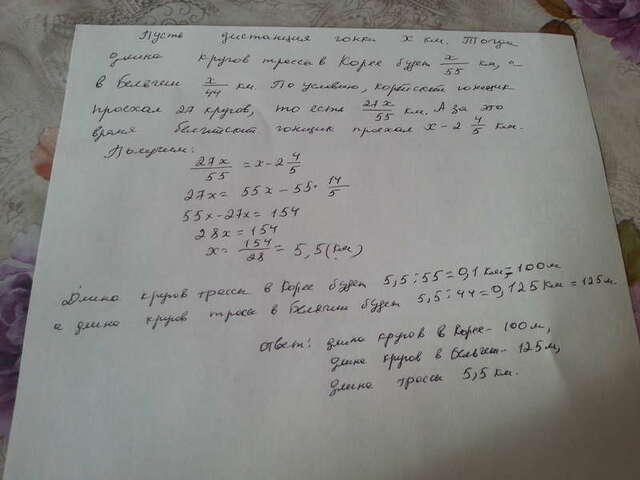 Пусть дистанция гонки x км. Тогда
длина кругов трассы в Корее будет x/55 км, а
в Бельгии x/44 км. По условию, корейский гонщик
проехал 27 кругов, то есть 27x/55 км. А за это
время бельгийский гонщик проехал x - 2 4/5 км.
Получим:
27x/55 = x - 2 4/5
27x = 55x - 55 · 14/5
55x - 27x = 154
28x = 154
x = 154/28 = 5,5 (км)
Длина кругов трассы в Корее будет 5,5 : 55 = 0,1 км = 100 м
а длина кругов трассы в Бельгии будет 5,5 : 44 = 0,125 км = 125 м.
Ответ: длина кругов в Корее - 100 м,
длина кругов в Бельгии - 125 м,
длина трассы 5,5 км.